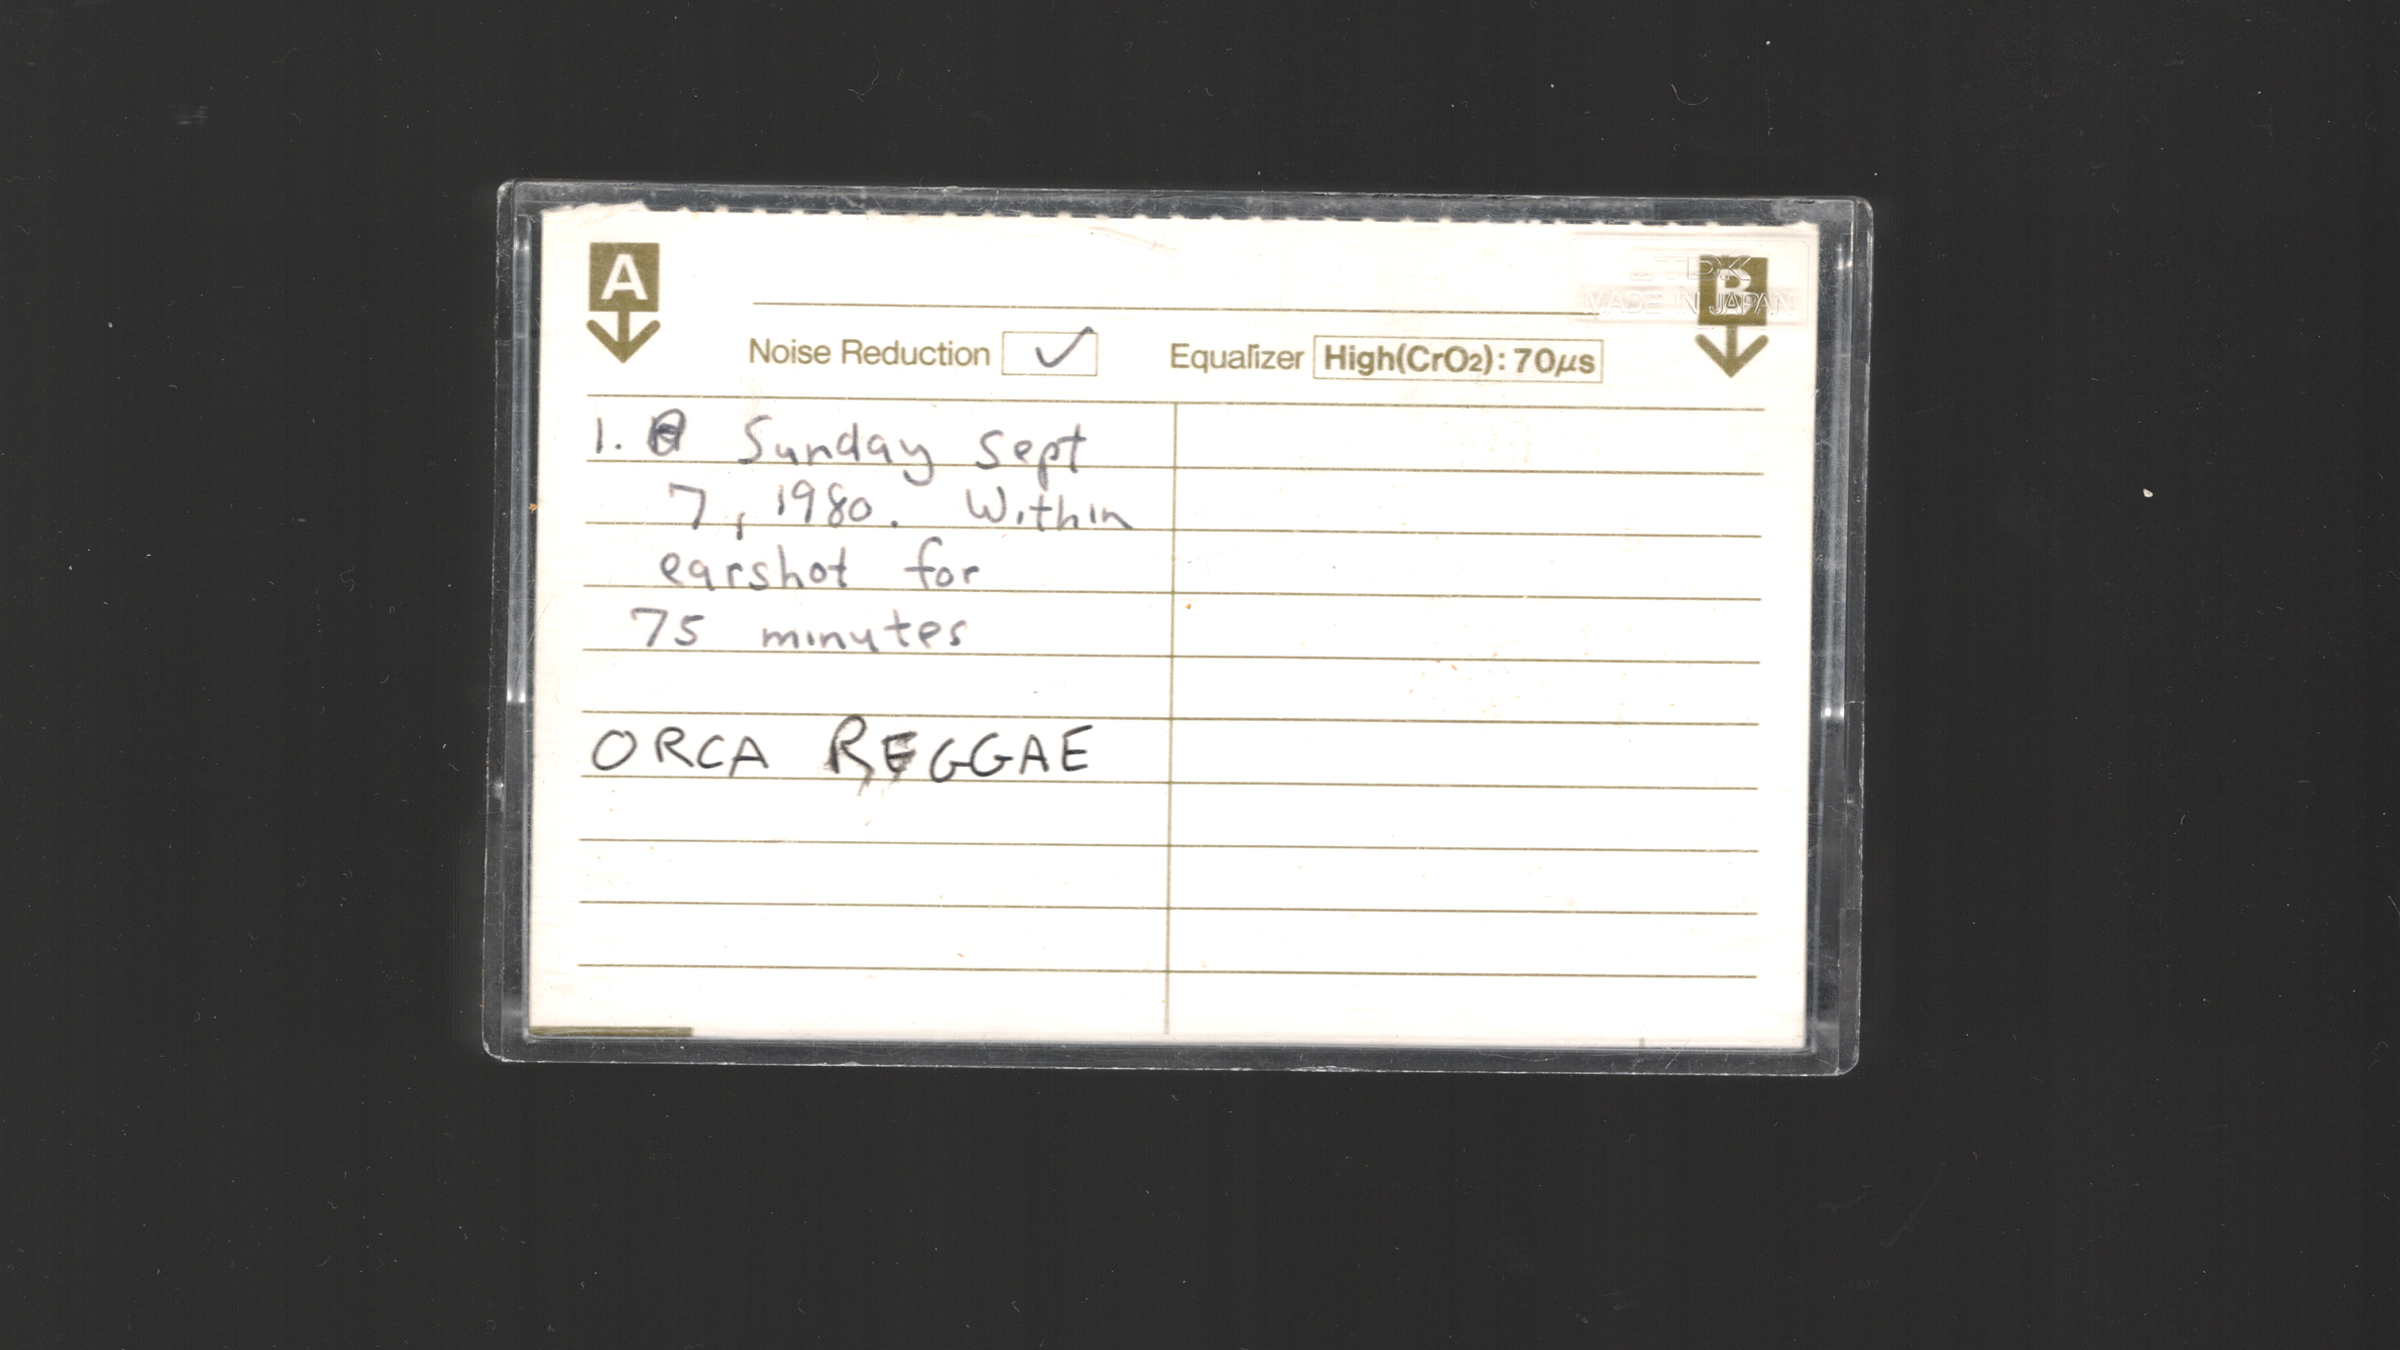 A
TDK
B
MADE IN JAPAN
Noise Reduction ✓ Equalizer High(CrO2): 70μs
1. Sunday Sept
7, 1980. Within
earshot for
75 minutes
ORCA REGGAE